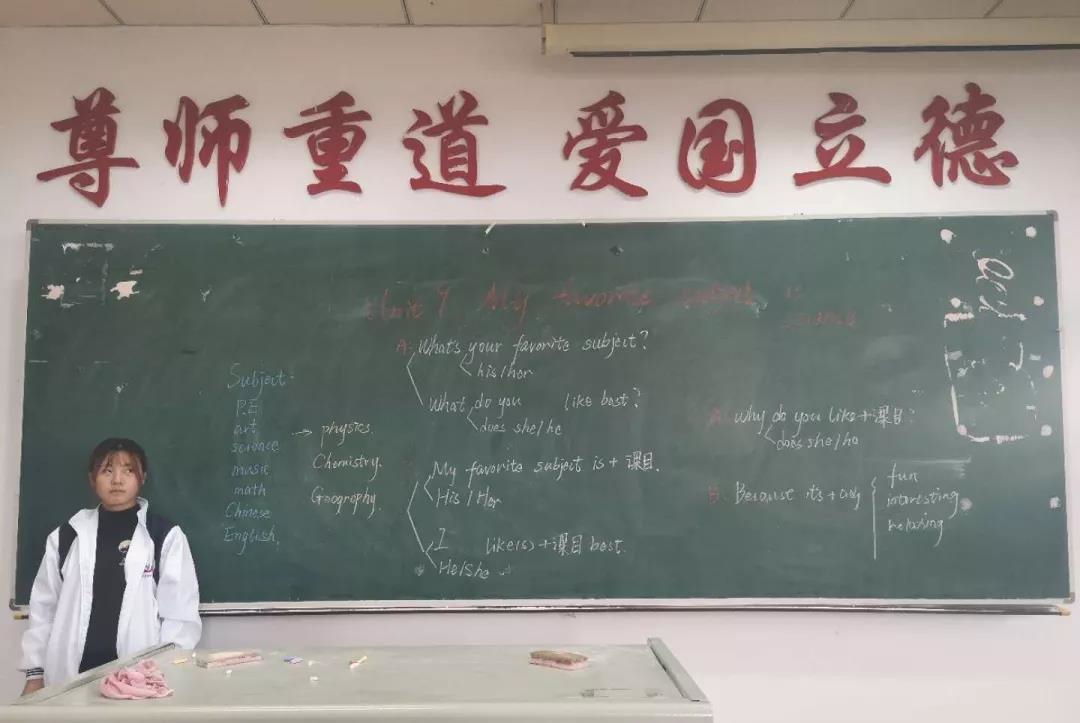 尊师重道 爱国立德
Unit 9 My favorite subject is
science
A: What's your favorite subject?
his/her
What do you like best?
does she/he
Subject:
P.E
art
science
music
math
Chinese
English.
→ physics.
Chemistry.
Geography.
My favorite subject is + 课目.
His/Her
I like(s) + 课目 best.
He/She
A: Why do you like + 课目?
does she/he
B: Because it's +
fun
interesting
relaxing